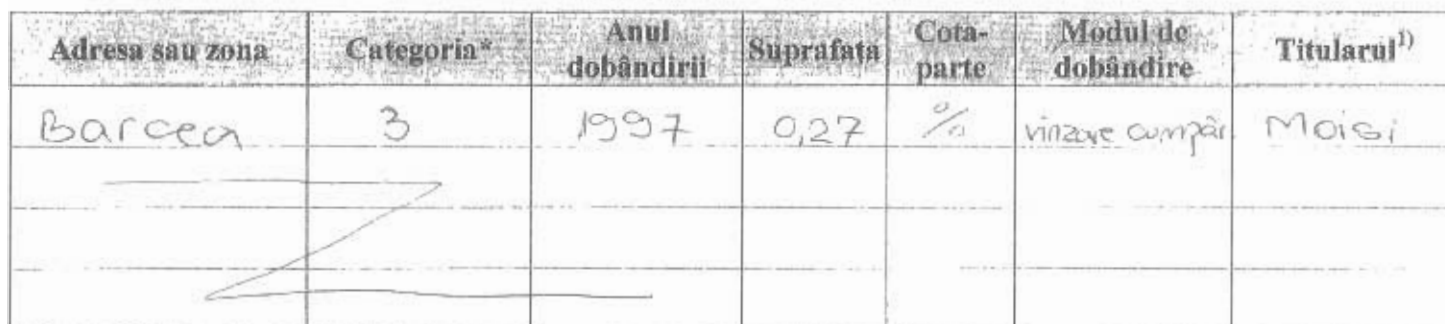 Adresa sau zona Categoria* Anul dobândirii Suprafaţa Cota-parte Modul de dobândire Titularul1)
Barcea 3 1997 0,27 % vinzare cumpăr. Moisi